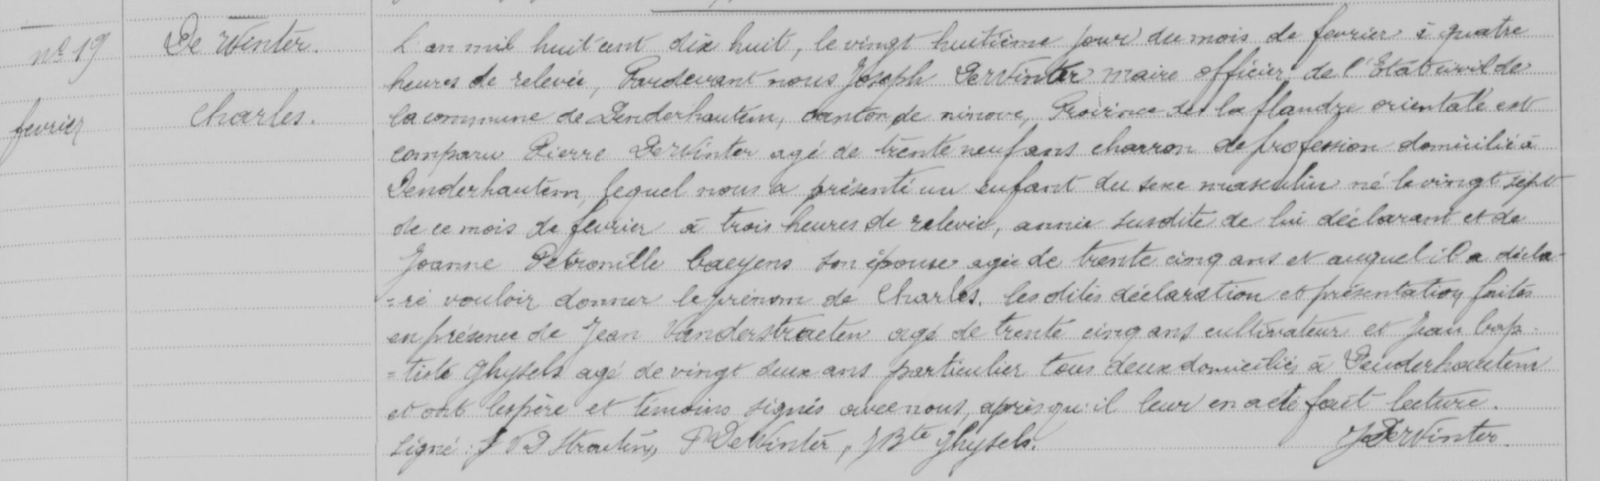 nº 19
fevrier
De Winter.
Charles.
L'an mil huit cent dix huit, le vingt huitième jour du mois de fevrier à quatre
heures de relevée, Pardevant nous Joseph DeWinter maire officier de l'Etat civil de
la commune de Denderhautem, canton de ninove, Province de la flandre orientale est
comparu Pierre DeWinter agé de trente neuf ans charron de profession domicilié à
Denderhautem, lequel nous a présenté un enfant du sexe masculin né le vingt sept
de ce mois de fevrier à trois heures de relevée, année susdite de lui déclarant et de
Joanne Petronille Caeyens son épouse agée de trente cinq ans et auquel il a décla-
=ré vouloir donner le prénom de Charles. les dites déclaration et présentation faites
en présence de Jean Vanderstraeten agé de trente cinq ans cultivateur et Jean bap-
=tiste Ghysels agé de vingt deux ans particulier tous deux domiciliés à Denderhautem
et ont les père et temoins signés avec nous, après qu'il leur en a été fait lecture.
Signé: J VD Straeten, P DeWinter, J Bte Ghysels. J DeWinter.